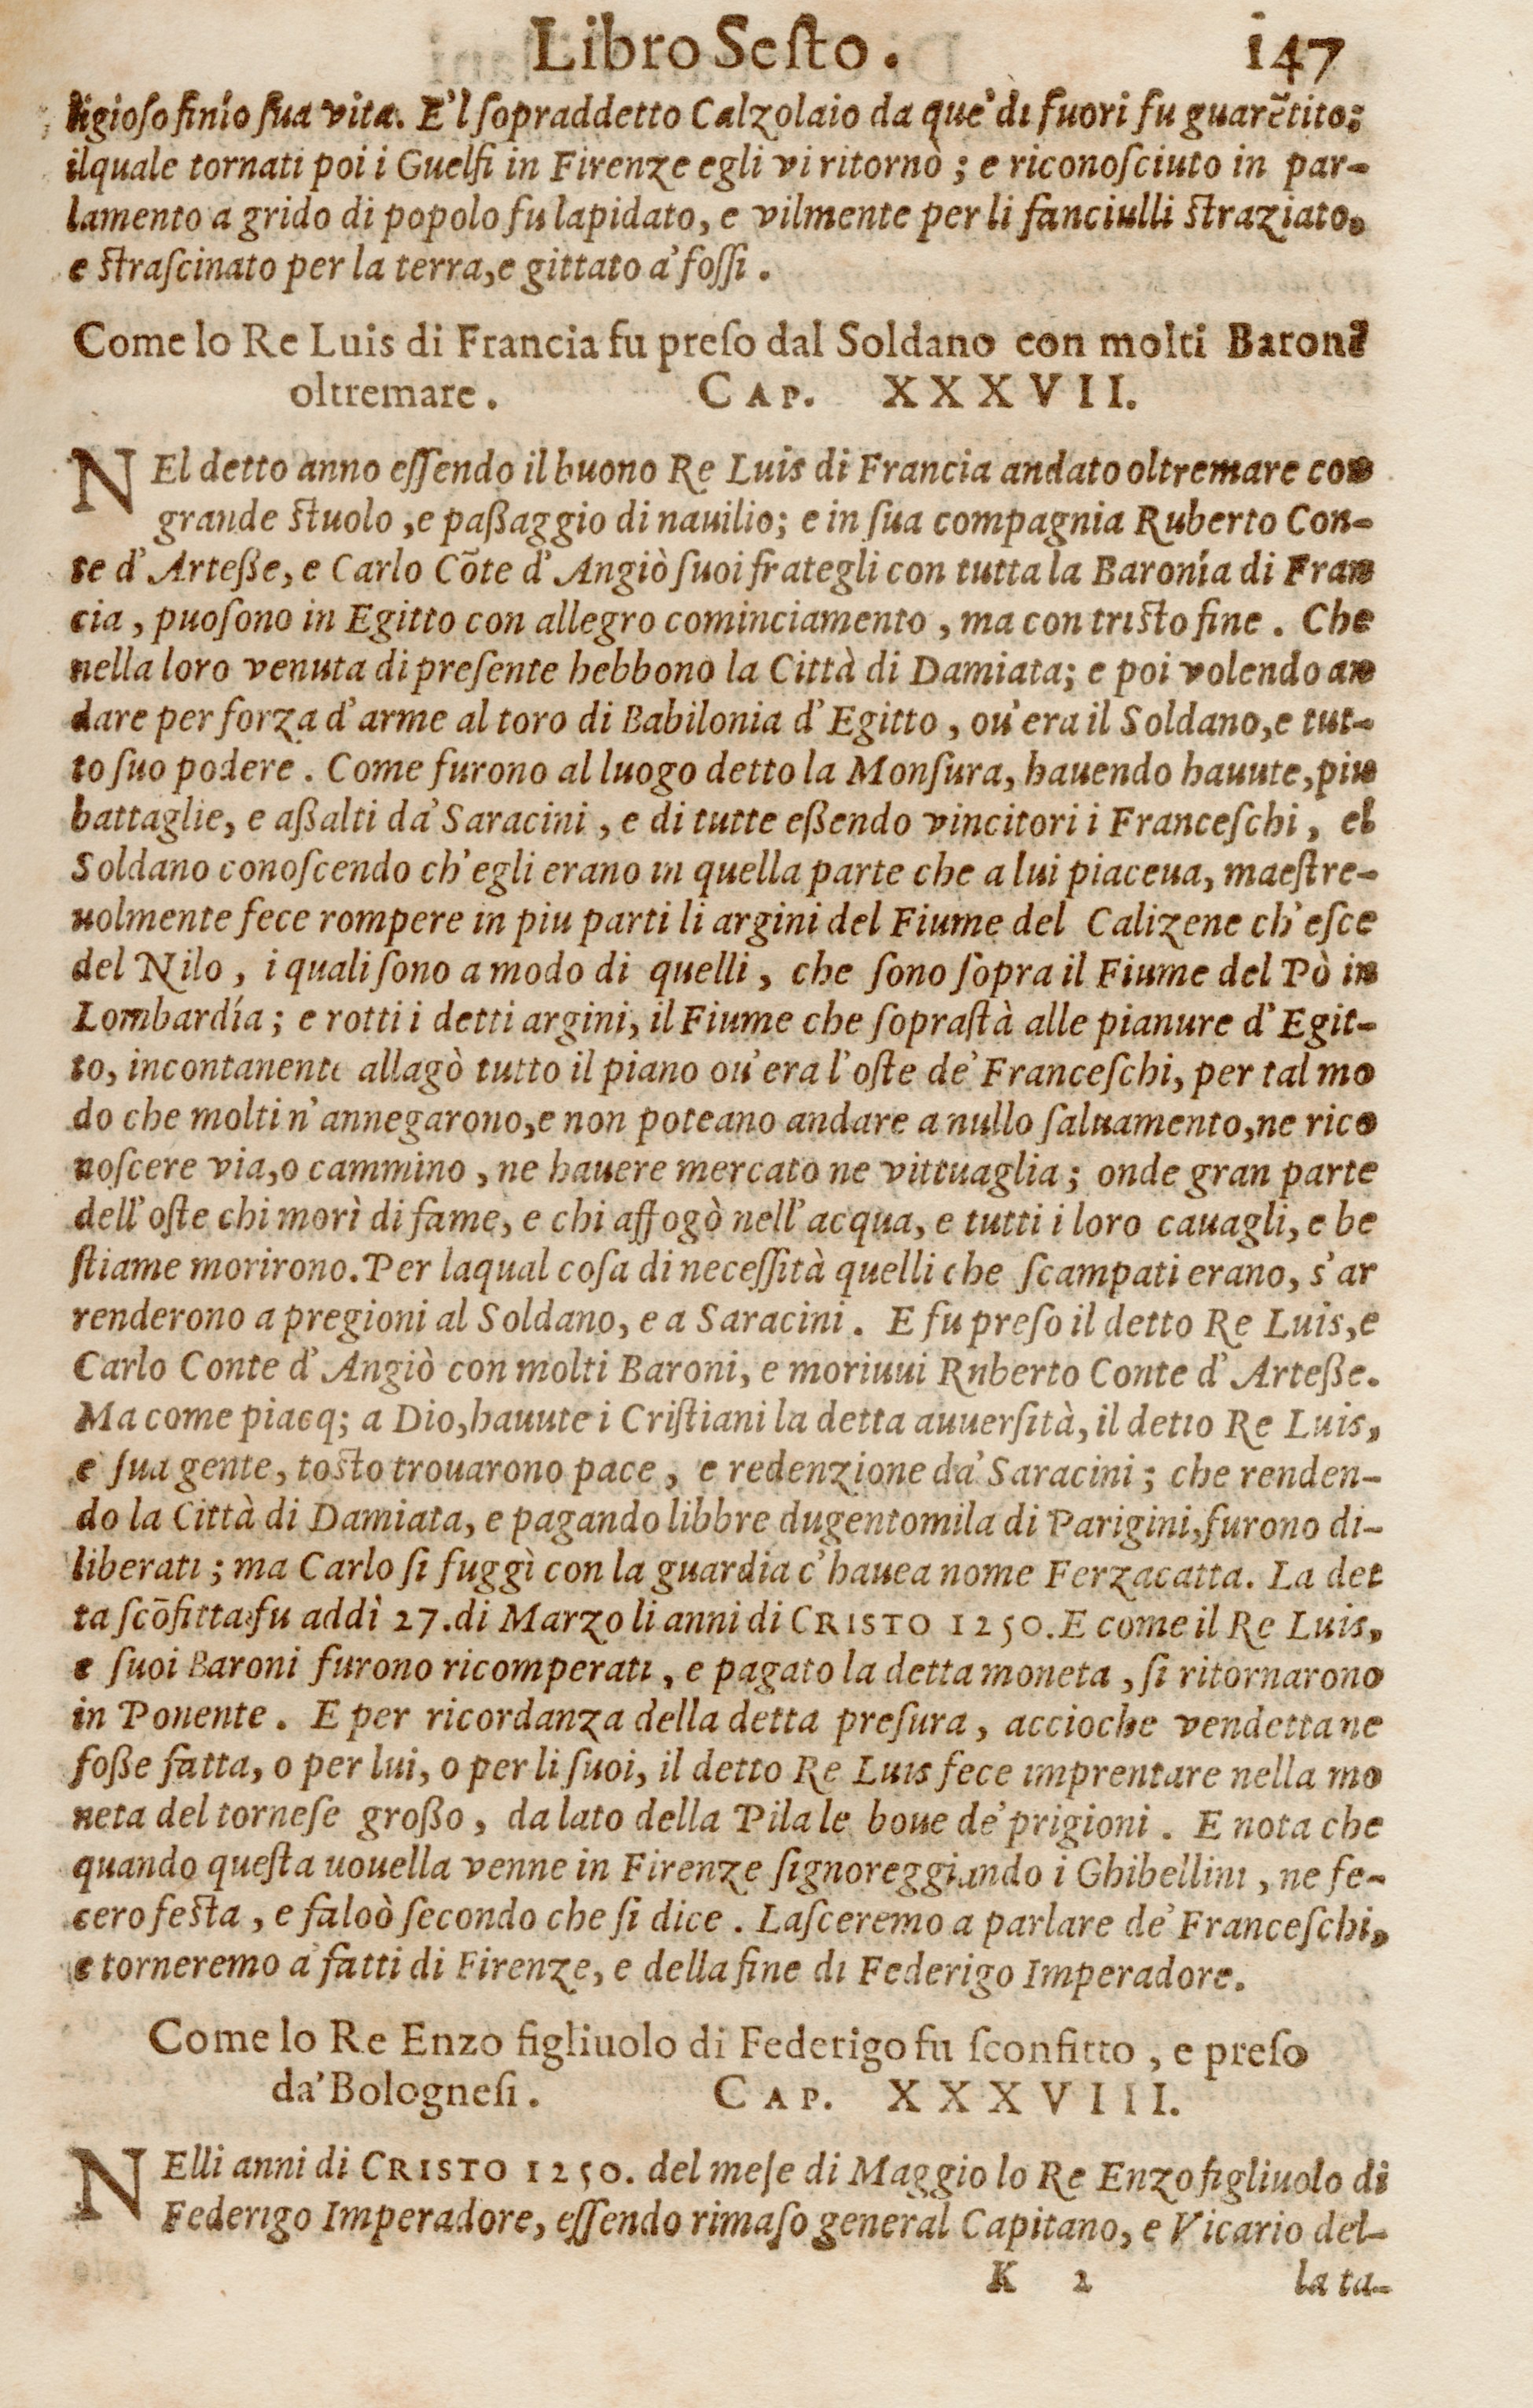 Libro Seſto. 147
ligioſo finío ſua vita. E'l ſopraddetto Calzolaio da que' di fuori fu guarẽtito:
ilquale tornati poi i Guelfi in Firenze egli vi ritornò; e riconoſciuto in par-
lamento a grido di popolo fu lapidato, e vilmente per li fanciulli ſtraziato,
e ſtraſcinato per la terra,e gittato a' foſſi.
Come lo Re Luis di Francia fu preſo dal Soldano con molti Baroni
oltremare. CAP. XXXVII.
NEl detto anno eſſendo il buono Re Luis di Francia andato oltremare con
grande ſtuolo,e paßaggio di nauilio; e in ſua compagnia Ruberto Con-
te d'Arteße, e Carlo Cõte d'Angiò ſuoi frategli con tutta la Baronía di Fran
cia, puoſono in Egitto con allegro cominciamento, ma con triſto fine. Che
nella loro venuta di preſente hebbono la Città di Damiata; e poi volendo an
dare per forza d'arme al toro di Babilonia d'Egitto, ou'era il Soldano,e tut-
to ſuo podere. Come furono al luogo detto la Monſura, hauendo hauute,piu
battaglie, e aßalti da' Saracini, e di tutte eßendo vincitori i Franceſchi, el
Soldano conoſcendo ch'egli erano in quella parte che a lui piaceua, maeſtre-
uolmente fece rompere in piu parti li argini del Fiume del Calizene ch'eſce
del Nilo, i quali ſono a modo di quelli, che ſono ſopra il Fiume del Pò in
Lombardía; e rotti i detti argini, il Fiume che ſopraſtà alle pianure d'Egit-
to, incontanente allagò tutto il piano ou'era l'oſte de' Franceſchi, per tal mo
do che molti n'annegarono,e non poteano andare a nullo ſaluamento,ne rico
noſcere via,o cammino, ne hauere mercato ne vittuaglia; onde gran parte
dell'oſte chi morì di fame, e chi affogò nell'acqua, e tutti i loro cauagli, e be
ſtiame morirono. Per laqual coſa di neceſſità quelli che ſcampati erano, s'ar
renderono a pregioni al Soldano, e a Saracini. E fu preſo il detto Re Luis,e
Carlo Conte d'Angiò con molti Baroni, e moriuui Rnberto Conte d'Arteße.
Ma come piacq; a Dio,hauute i Criſtiani la detta auuerſità, il detto Re Luis,
e ſua gente, toſto trouarono pace, e redenzione da' Saracini; che renden-
do la Città di Damiata, e pagando libbre dugentomila di Parigini,furono di-
liberati; ma Carlo ſi fuggì con la guardia c'hauea nome Ferzacatta. La det
ta ſcõfitta fu addì 27.di Marzo li anni di CRISTO 1250.E come il Re Luis,
e ſuoi Baroni furono ricomperati, e pagato la detta moneta, ſi ritornarono
in Ponente. E per ricordanza della detta preſura, accioche vendetta ne
foße fatta, o per lui, o per li ſuoi, il detto Re Luis fece imprentare nella mo
neta del torneſe großo, da lato della Pila le boue de' prigioni. E nota che
quando queſta uouella venne in Firenze ſignoreggiando i Ghibellini, ne fe-
cero feſta, e faloò ſecondo che ſi dice. Laſceremo a parlare de' Franceſchi,
e torneremo a' fatti di Firenze, e della fine di Federigo Imperadore.
Come lo Re Enzo figliuolo di Federigo fu ſconfitto, e preſo
da' Bologneſi. CAP. XXXVIII.
NElli anni di CRISTO 1250. del meſe di Maggio lo Re Enzo figliuolo di
Federigo Imperadore, eſſendo rimaſo general Capitano, e Vicario del-
K 2 la ta-